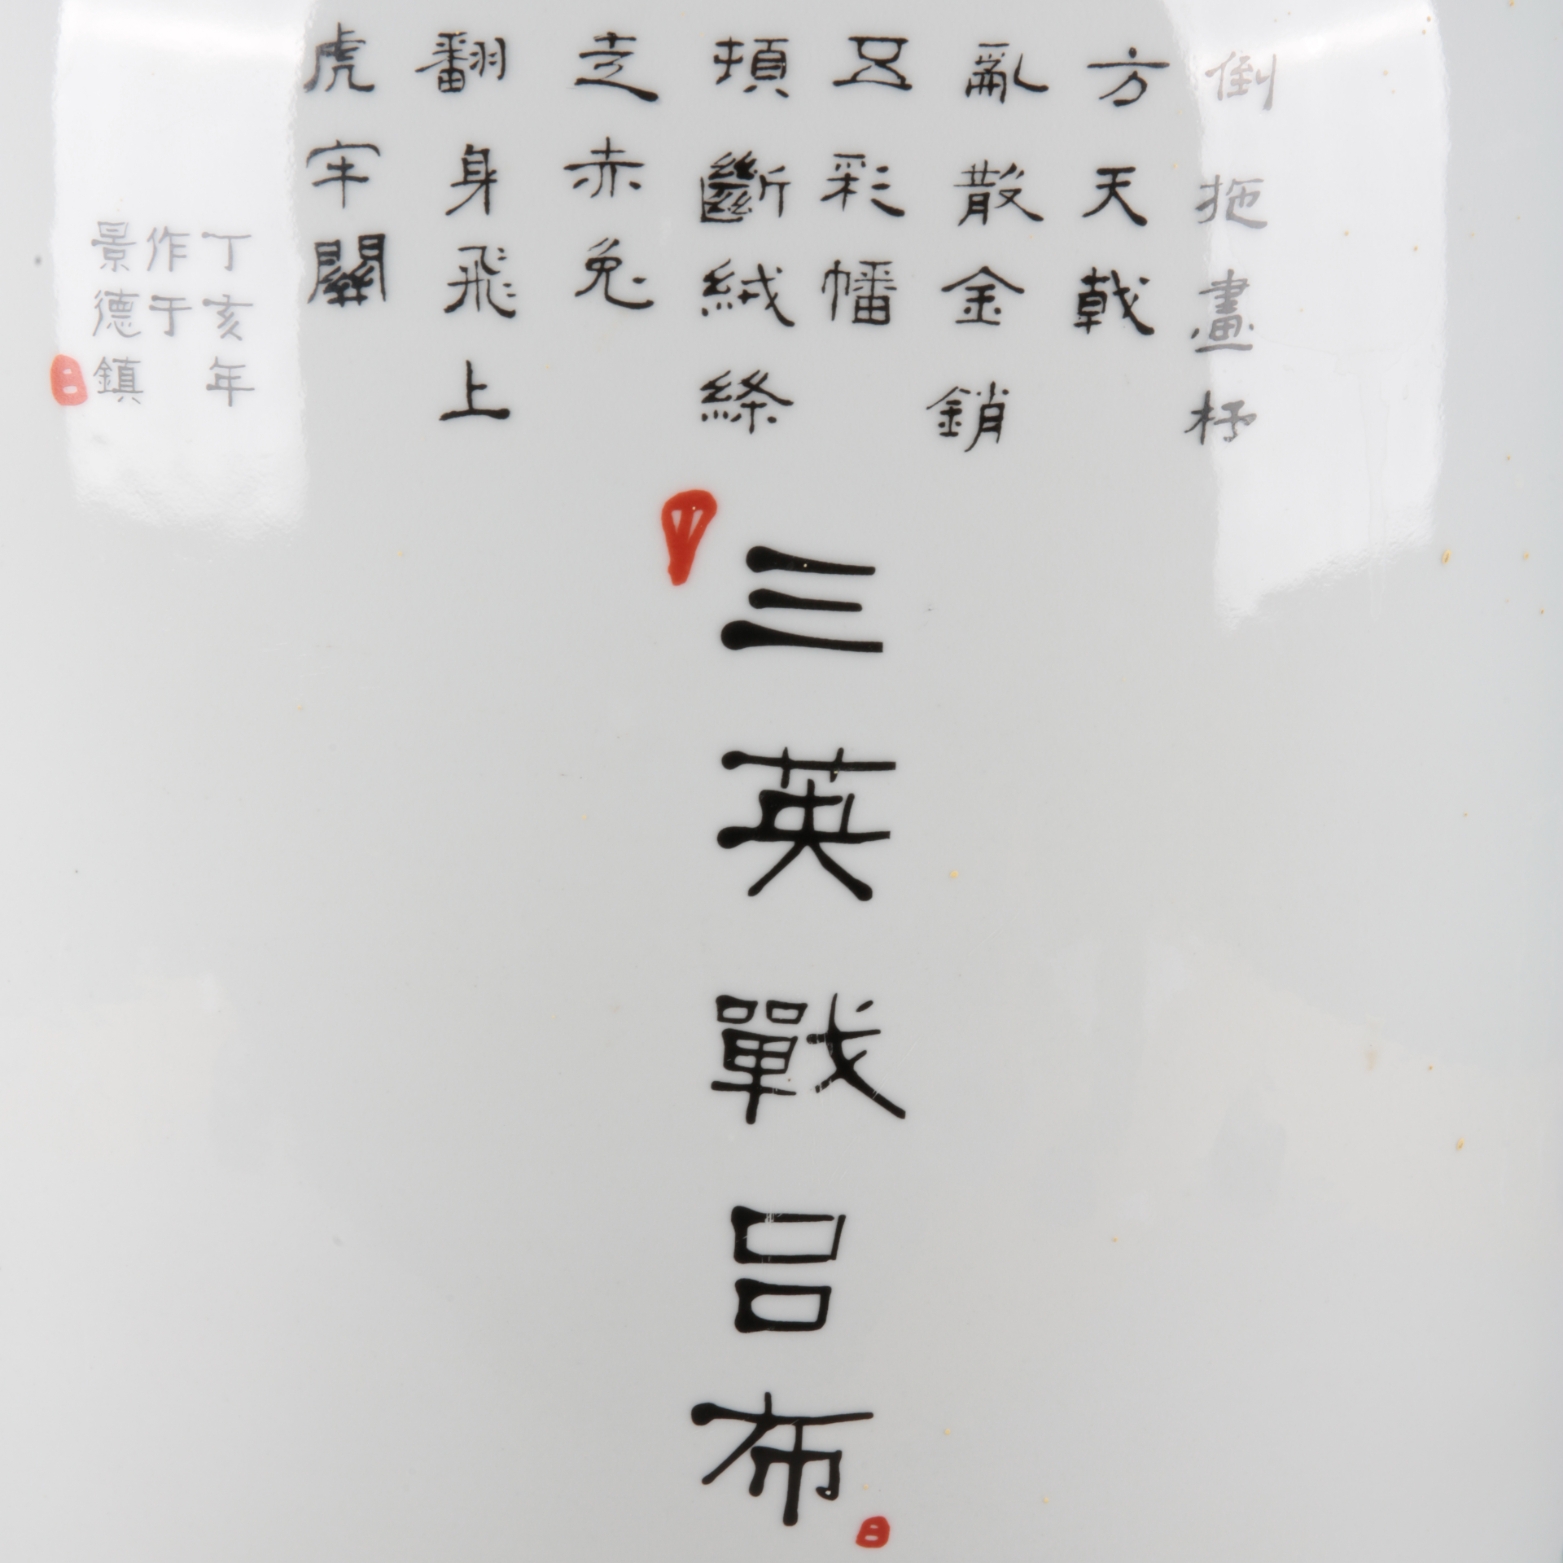 倒拖畫杆
方天戟
亂散金銷
五彩幡
頓斷絨絛
走赤兔
翻身飛上
虎牢關
丁亥年
作于
景德鎮
三英戰呂布